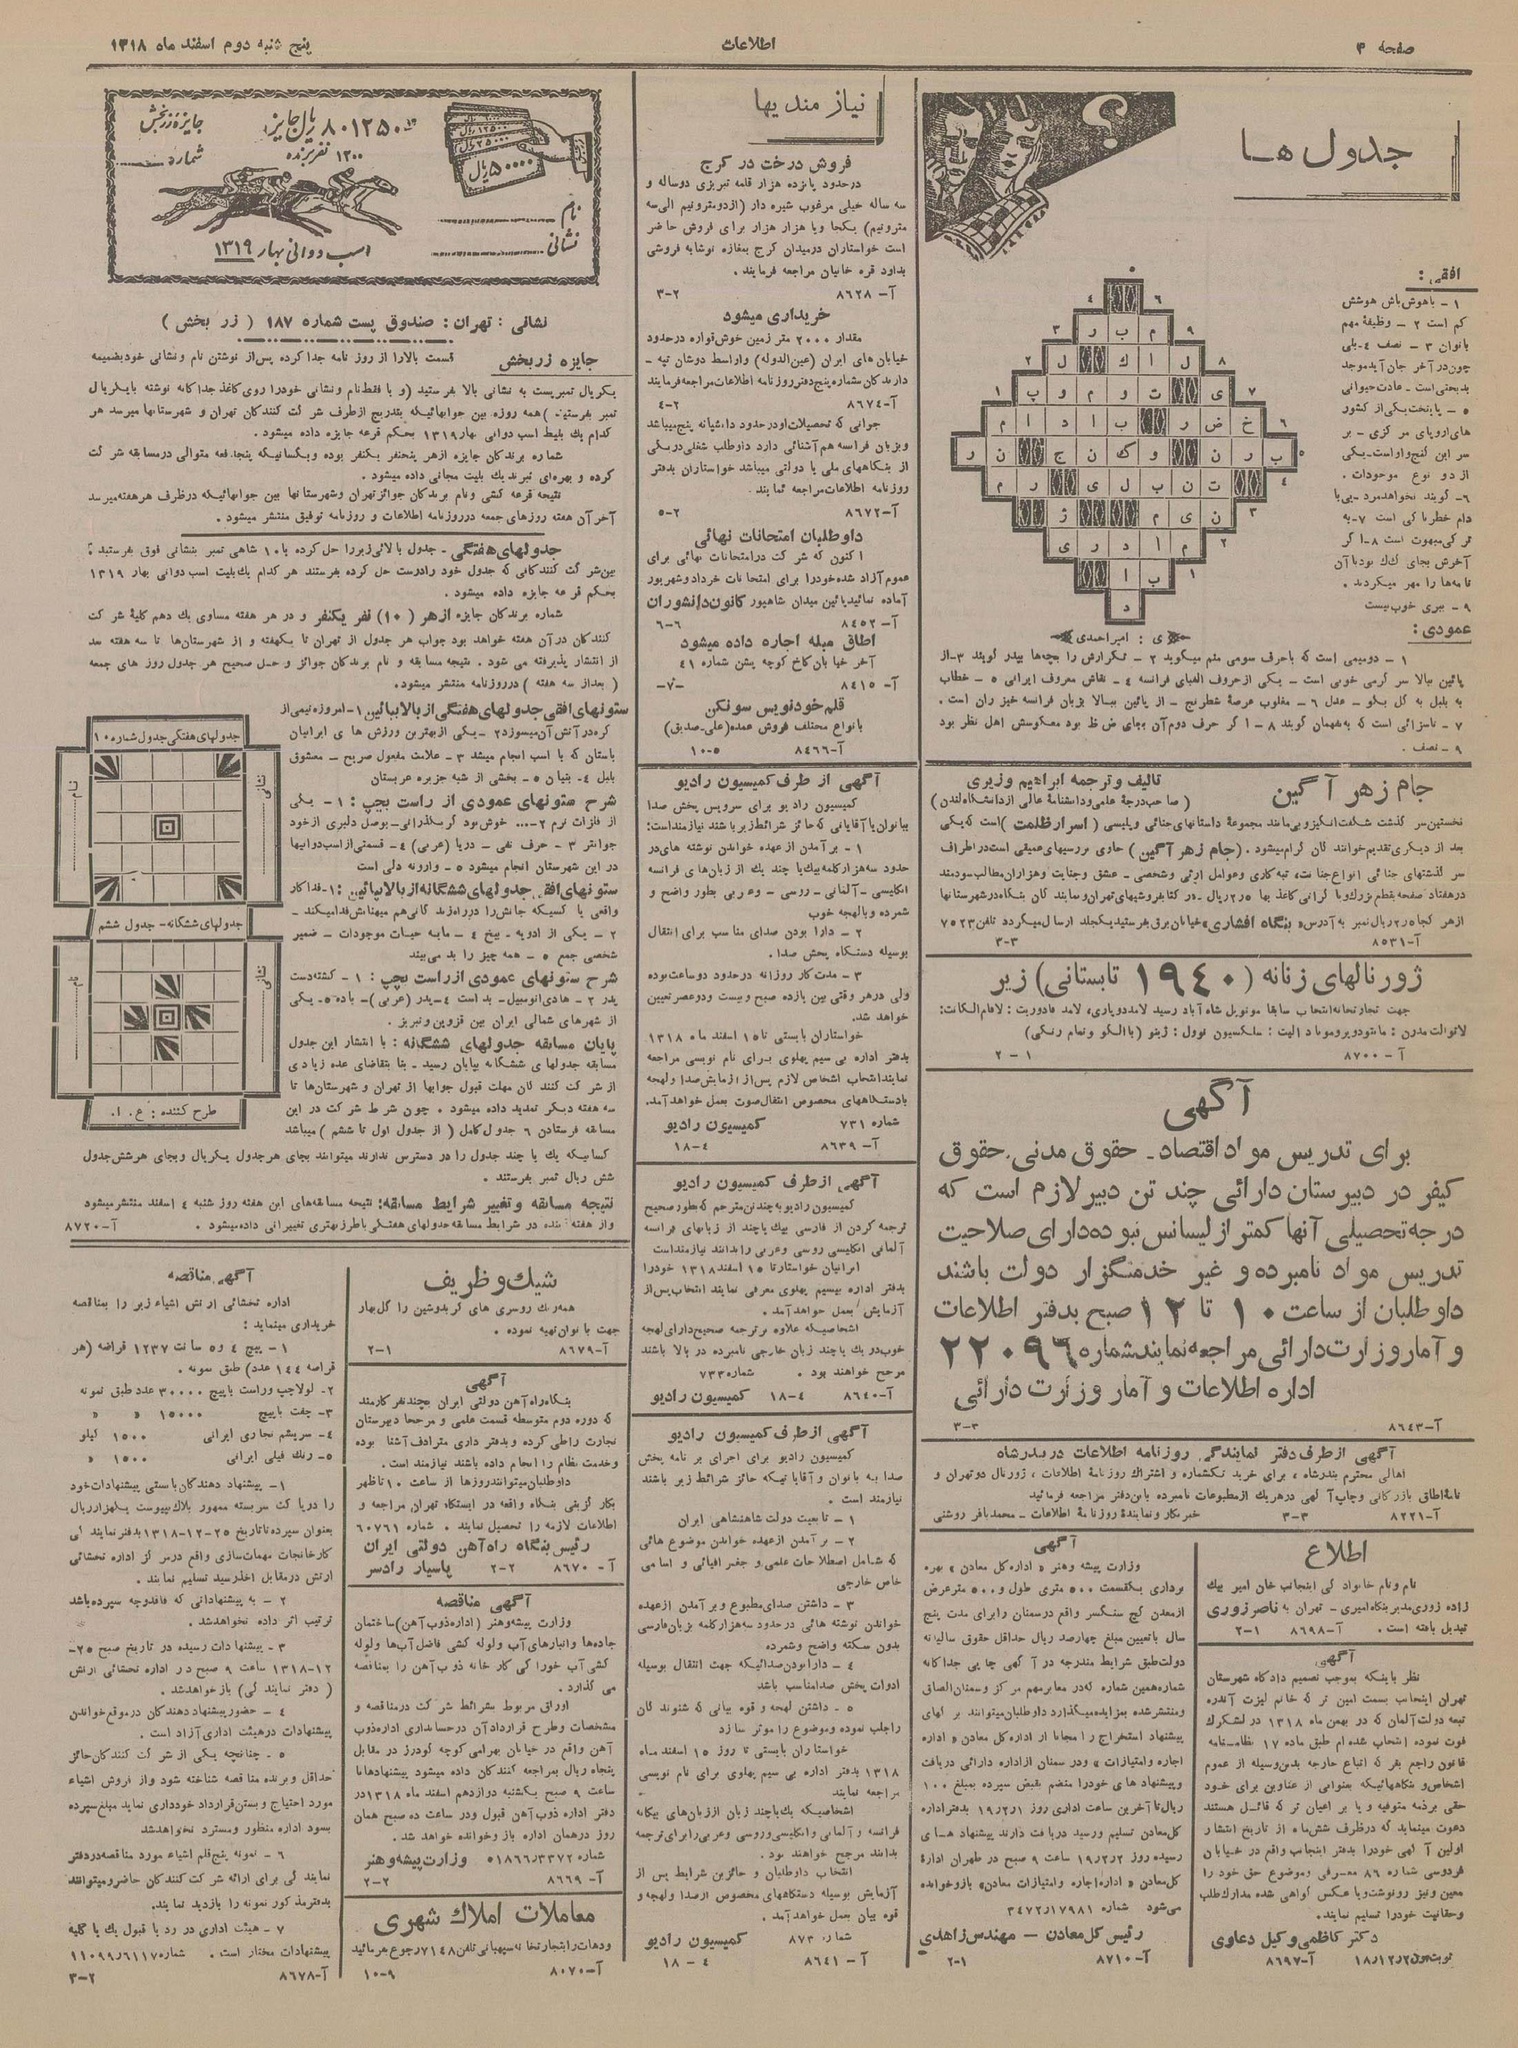 صفحه ۴
اطلاعات
پنج شنبه دوم اسفند ماه ۱۳۱۸
جدول ها
افقی :
۱ - باهوش باش هوشش
کم است ۲ - وظیفهٔ مهم
بانوان ۳ - نصف ۴ - بلی
چون در آخر جان آید موجد
بدبختی است - عادت حیوانی
۵ - پایتخت یکی از کشور
های اروپای مرکزی - بر
سر این گنج و اواست - یکی
از دو نوع موجودات .
۶ - گویند نخواهد مرد - بی یا
دام خطرناکی است ۷ - به
ترکی مبهوت است ۸ - اگر
نامه ها را مهر میکردند .
۹ - ببری خوب نیست
عمودی :
ی : امیراحمدی
۷ - ناسزائی است که به مهمان گویند ۸ - اگر حرف دوم آن بجای ض ظ بود معکوسش اهل نظر بود
۹ - نصف .
جام زهر آگین
تالیف و ترجمه ابراهیم وزیری
( صاحب درجهٔ علمی و دانشنامهٔ عالی از دانشگاه لندن )
نخستین سر گذشت شگفت انگیز و بی مانند مجموعهٔ داستانهای جنائی و پلیسی ( اسرار ظلمت ) است که یکی
بعد از دیگری تقدیم خوانندگان گرام میشود . ( جام زهر آگین ) حاوی بررسیهای عمیقی است در اطراف
سر گذشتهای جنائی انواع جنایت ، تبه کاری و عوامل ارثی و شخصی - عشق و جنایت و هزاران مطالب سودمند
آ - ۸۵۳۱
۳-۳
ژورنالهای زنانه ( ۱۹۴۰ تابستانی ) زیر
آ - ۸۷۰۰
۱ - ۲
آگهی
برای تدریس مواد اقتصاد - حقوق مدنی ، حقوق
کیفر در دبیرستان دارائی چند تن دبیر لازم است که
درجه تحصیلی آنها کمتر از لیسانس نبوده دارای صلاحیت
تدریس مواد نامبرده و غیر خدمتگزار دولت باشند
داوطلبان از ساعت ۱۰ تا ۱۲ صبح بدفتر اطلاعات
و آمار وزارت دارائی مراجعه نمایند شماره ۲۲۰۹۶
اداره اطلاعات و آمار وزارت دارائی
آ - ۸۶۴۳
۳-۳
آگهی از طرف دفتر نمایندگی روزنامه اطلاعات در بندرشاه
اهالی محترم بندرشاه ، برای خرید تکشماره و اشتراک روزنامهٔ اطلاعات ، ژورنال دو تهران و
نامهٔ اطاق بازرگانی و چاپ آگهی در هر یک از مطبوعات نامبرده باین دفتر مراجعه فرمائید
آ - ۸۲۲۱
۳-۳
خبرنگار و نمایندهٔ روزنامهٔ اطلاعات - محمد باقر روشنی
اطلاع
نام و نام خانوادگی اینجانب خان امیر بیک
زاده زوری مدیر بنگاه امیری - تهران به ناصر زوری
تبدیل یافته است .
آ - ۸۶۹۸
۲-۱
آگهی
نظر باینکه بموجب تصمیم دادگاه شهرستان
تهران اینجانب بسمت امین ترکه خانم لیزت آندره
تبعه دولت آلمان که در بهمن ماه ۱۳۱۸ در لشکرک
فوت نموده انتخاب شده ام طبق ماده ۱۷ نظامنامه
قانون راجع بترکه اتباع خارجه بدین وسیله از عموم
اشخاص و بنگاههائیکه بعنوانی از عناوین برای خود
حقی برذمه متوفیه و یا بر اعیان ترکه قائل هستند
دعوت مینماید که در ظرف شش ماه از تاریخ انتشار
اولین آگهی خود را بدفتر اینجانب واقع در خیابان
فردوسی شماره ۸۶ معرفی و موضوع حق خود را
معین و نیز رونوشت و یا عکس گواهی شده مدارک طلب
و حقانیت خود را تسلیم نمایند .
دکتر کاظمی وکیل دعاوی
نوبت اول ۱۸/۱۲/۲
آ - ۸۶۹۷
آگهی
وزارت پیشه و هنر « اداره کل معادن » بهره
برداری یکقسمت ۵۰۰ متری طول و ۵۰۰ متر عرض
از معدن گچ سنگسر واقع در سمنان را برای مدت پنج
سال با تعیین مبلغ چهارصد ریال حداقل حقوق سالیانه
دولت طبق شرایط مندرجه در آگهی چاپی جداگانه
شماره همین شماره که در معابر مهم مرکز و سمنان الصاق
و منتشر شده بمزایده میگذارد داوطلبان میتوانند برگهای
پیشنهاد استخراج را مجانا از اداره کل معادن « اداره
اجاره و امتیازات » و در سمنان از اداره دارائی دریافت
و پیشنهادهای خود را منضم بقبض سپرده بمبلغ ۱۰۰
ریال تا آخرین ساعت اداری روز ۱۹/۲/۱ بدفتر اداره
کل معادن تسلیم و رسید دریافت دارند پیشنهادهای
رسیده روز ۱۹/۲/۲ ساعت ۹ صبح در طهران ادارهٔ
کل معادن « اداره اجاره و امتیازات معادن » باز و خوانده
می شود شماره ۳۴۷۲/۱۷۹۸۱
رئیس کل معادن - مهندس زاهدی
آ - ۸۷۱۰
۲-۱
نیازمندیها
فروش درخت در کرج
در حدود پانزده هزار قلمه تبریزی دوساله و
سه ساله خیلی مرغوب شیره دار ( از دو مترونیم الی سه
مترونیم ) یکجا و یا هزار هزار برای فروش حاضر
است خواستاران در میدان کرج بمغازه نوشابه فروشی
بداود قره خانیان مراجعه فرمایند .
آ - ۸۶۲۸
۳-۲
خریداری میشود
مقدار ۲۰۰۰ متر زمین خوش قواره در حدود
خیابان های ایران ( عین الدوله ) و اواسط دوشان تپه -
دارندگان بشماره پنج دفتر روزنامه اطلاعات مراجعه فرمایند
آ - ۸۶۷۴
۴-۲
جوانی که تحصیلات او در حدود دانشنامه پنج میباشد
و بزبان فرانسه هم آشنائی دارد داوطلب شغلی در یکی
از بنگاههای ملی یا دولتی میباشد خواستاران بدفتر
روزنامه اطلاعات مراجعه نمایند .
آ - ۸۶۷۲
۵-۲
داوطلبان امتحانات نهائی
اکنون که شرکت در امتحانات نهائی برای
عموم آزاد شده خود را برای امتحانات خرداد و شهریور
آماده نمائید پائین میدان شاهپور کانون دانشوران
آ - ۸۴۵۲
۶-۶
اطاق مبله اجاره داده میشود
آخر خیابان کاخ کوچه پشن شماره ۴۱
آ - ۸۴۱۵
-۷-
قلم خودنویس سونکن
بانواع مختلف فروش عمده ( علی - صدیق )
آ - ۸۴۶۶
۱۰-۵
آگهی از طرف کمیسیون رادیو
کمیسیون رادیو برای سرویس پخش صدا
ببانوان یا آقایانی که حائز شرائط زیر باشند نیازمند است :
۱ - بر آمدن از عهده خواندن نوشته های در
حدود سه هزار کلمه بیک یا چند یک از زبان های فرانسه
انگلیسی - آلمانی - روسی - و عربی بطور واضح و
شمرده و بالهجه خوب
۲ - دارا بودن صدای مناسب برای انتقال
بوسیله دستگاه پخش صدا .
۳ - مدت کار روزانه در حدود دو ساعت بوده
ولی در هر وقتی بین یازده صبح و بیست و دو عصر تعیین
خواهد شد .
خواستاران بایستی تا ۱۵ اسفند ماه ۱۳۱۸
بدفتر اداره بی سیم پهلوی برای نام نویسی مراجعه
نمایند انتخاب اشخاص لازم پس از آزمایش صدا و لهجه
با دستگاههای مخصوص انتقال صوت بعمل خواهد آمد .
شماره ۷۳۱ کمیسیون رادیو
آ - ۸۶۳۹
۱۸-۴
آگهی از طرف کمیسیون رادیو
کمیسیون رادیو بچند تن مترجم که بطور صحیح
ترجمه کردن از فارسی بیک یا چند از زبانهای فرانسه
آلمانی انگلیسی روسی و عربی را بدانند نیازمند است
ایرانیان خواستار تا ۱۵ اسفند ۱۳۱۸ خود را
بدفتر اداره بیسیم پهلوی معرفی نمایند انتخاب پس از
آزمایش بعمل خواهد آمد .
اشخاصیکه علاوه بر ترجمه صحیح دارای لهجه
خوب در یک یا چند زبان خارجی نامبرده در بالا باشند
مرجح خواهند بود . شماره ۷۳۳
آ - ۸۶۴۰
۱۸-۴ کمیسیون رادیو
آگهی از طرف کمیسیون رادیو
کمیسیون رادیو برای اجرای برنامه پخش
صدا به بانوان و آقایانیکه حائز شرائط زیر باشند
نیازمند است .
۱ - تابعیت دولت شاهنشاهی ایران
۲ - بر آمدن از عهده خواندن موضوع هائی
که شامل اصطلاحات علمی و جغرافیائی و اسامی
خاص خارجی
۳ - داشتن صدای مطبوع و بر آمدن از عهده
خواندن نوشته هائی در حدود سه هزار کلمه بزبان فارسی
بدون سکته واضح و شمرده
۴ - دارا بودن صدائیکه جهت انتقال بوسیله
ادوات پخش صدا مناسب باشد
۵ - داشتن لهجه و قوه بیانی که شنوندگان
را جلب نموده و موضوع را موثر سازد
خواستاران بایستی تا روز ۱۵ اسفند ماه
۱۳۱۸ بدفتر اداره بی سیم پهلوی برای نام نویسی
مراجعه نمایند
اشخاصیکه یک یا چند زبان از زبان های بیگانه
فرانسه و آلمانی و انگلیسی و روسی و عربی را برای ترجمه
بدانند مرجح خواهند بود .
انتخاب داوطلبان و حائزین شرایط پس از
آزمایش بوسیله دستگاههای مخصوص از صدا و لهجه و
قوه بیان بعمل خواهد آمد .
شماره ۸۷۳ کمیسیون رادیو
آ - ۸۶۴۱
۴ - ۱۸
جایزه زربخش
۸۰۱۲۵۰ ریال جایزه
۱۲۰۰ نفر برنده
شماره
۵۰۰۰۰ ریال
نام
نشانی
اسب دوانی بهار ۱۳۱۹
نشانی : تهران : صندوق پست شماره ۱۸۷ ( زر بخش )
جایزه زربخش
قسمت بالا را از روز نامه جدا کرده پس از نوشتن نام و نشانی خود بضمیمه
یکریال تمبر پست به نشانی بالا بفرستید ( و یا فقط نام و نشانی خود را روی کاغذ جداگانه نوشته با یکریال
تمبر بفرستید ) همه روزه بین جوابهائیکه بتدریج از طرف شرکت کنندگان تهران و شهرستانها میرسد هر
کدام یک بلیط اسب دوانی بهار ۱۳۱۹ بحکم قرعه جایزه داده میشود .
شماره برندگان جایزه از هر پنجنفر یکنفر بوده و بکسانیکه پنجدفعه متوالی در مسابقه شرکت
کرده و بهره ای نبرند یک بلیت مجانی داده میشود .
نتیجه قرعه کشی و نام برندگان جوائز تهران و شهرستانها بین جوابهائیکه در ظرف هر هفته میرسد
آخر آن هفته روزهای جمعه در روزنامه اطلاعات و روزنامه توفیق منتشر میشود .
جدولهای هفتگی - جدول بالائی زیر را حل کرده با ۱۰ شاهی تمبر بنشانی فوق بفرستید :
بین شرکت کنندگانی که جدول خود را درست حل کرده بفرستند هر کدام یک بلیت اسب دوانی بهار ۱۳۱۹
بحکم قرعه جایزه داده میشود .
شماره برندگان جایزه از هر ( ۱۰ ) نفر یکنفر و در هر هفته مساوی یک دهم کلیهٔ شرکت
کنندگان در آن هفته خواهد بود جواب هر جدول از تهران تا یکهفته و از شهرستان ها تا سه هفته بعد
از انتشار پذیرفته می شود . نتیجه مسابقه و نام برندگان جوائز و حل صحیح هر جدول روز های جمعه
( بعد از سه هفته ) در روزنامه منتشر میشود .
ستونهای افقی جدولهای هفتگی از بالا بپائین ۱ - امروزه نیمی از
کره در آتش آن میسوزد ۲ - یکی از بهترین ورزش های ایرانیان
باستان که با اسب انجام میشد ۳ - علامت مفعول صریح - معشوق
بلبل ۴ - بنیان ۵ - بخشی از شبه جزیره عربستان
شرح ستونهای عمودی از راست بچپ : ۱ - یکی
جوانتر ۳ - حرف نفی - دریا ( عربی ) ۴ - قسمتی از اسب دوانیها
در این شهرستان انجام میشود ۵ - وارونه دلی است
ستونهای افقی جدولهای ششگانه از بالا بپائین : ۱ - فداکار
۲ - یکی از ادویه - بیخ ۴ - مایه حیات موجودات - ضمیر
شخصی جمع ۵ - همه چیز را بد می بیند
شرح ستونهای عمودی از راست بچپ : ۱ - کشته دست
پدر ۲ - هادی اتومبیل - بد است ۴ - پدر ( عربی ) - باده ۵ - یکی
از شهرهای شمالی ایران بین قزوین و تبریز .
پایان مسابقه جدولهای ششگانه : با انتشار این جدول
مسابقه جدولهای ششگانه بپایان رسید - بنا بتقاضای عده زیادی
از شرکت کنندگان مهلت قبول جوابها از تهران و شهرستان ها تا
سه هفته دیگر تمدید داده میشود . چون شرط شرکت در این
مسابقه فرستادن ۶ جدول کامل ( از جدول اول تا ششم ) میباشد
کسانیکه یک یا چند جدول را در دسترس ندارند میتوانند بجای هر جدول یکریال و بجای هر شش جدول
شش ریال تمبر بفرستند .
نتیجه مسابقه و تغییر شرایط مسابقه : نتیجه مسابقه های این هفته روز شنبه ۴ اسفند منتشر میشود
آ - ۸۷۲۰
جدولهای هفتگی جدول شماره ۱۰
نام
نشانی
جدولهای ششگانه - جدول ششم
نام
نشانی
طرح کننده : ع . ا .
شیک و ظریف
همه رنگ روسری های کربدوشین را گل بهار
جهت بانوان تهیه نموده .
آ - ۸۶۷۹
۲-۱
آگهی
بنگاه راه آهن دولتی ایران بچند نفر کارمند
که دوره دوم متوسطه قسمت علمی و مرجحا دبیرستان
تجارت را طی کرده و بدفتر داری مترادف آشنا بوده
و خدمت نظام را انجام داده باشند نیازمند است .
داوطلبان میتوانند روزها از ساعت ۱۰ تا ظهر
بکارگزینی بنگاه واقعه در ایستگاه تهران مراجعه و
اطلاعات لازمه را تحصیل نمایند . شماره ۶۰۷۶۱
رئیس بنگاه راه آهن دولتی ایران
آ - ۸۶۷۰
۲-۲ پاسیار رادسر
آگهی مناقصه
وزارت پیشه و هنر ( اداره ذوب آهن ) ساختمان
جاده ها و انبارهای آب و لوله کشی فاضل آب ها و لوله
کشی آب خوراکی کارخانه ذوب آهن را بمناقصه
می گذارد .
اوراق مربوط بشرائط شرکت در مناقصه و
مشخصات و طرح قرارداد آن در حسابداری اداره ذوب
آهن واقع در خیابان بهرامی کوچه لودرز در مقابل
پنجاه ریال بمراجعه کنندگان داده میشود پیشنهادها تا
ساعت ۹ صبح یکشنبه دوازدهم اسفند ماه ۱۳۱۸ در
دفتر اداره ذوب آهن قبول و در ساعت ده صبح همان
روز در همان اداره باز و خوانده خواهد شد .
شماره ۵۱۸۶۶/۳۳۷۲ وزارت پیشه و هنر
آ - ۸۶۶۹
۲-۲
معاملات املاک شهری
و دهات را بتجارتخانه سیهبانی تلفن ۷۱۴۸ رجوع فرمائید
آ - ۸۰۷۰
۱۰-۹
آگهی مناقصه
اداره تخشائی ارتش اشیاء زیر را بمناقصه
خریداری مینماید :
۱ - پیچ ۴ و ۵ سانت ۱۲۳۷ قراصه ( هر
قراصه ۱۴۴ عدد ) طبق نمونه .
۲ - لولا چپ و راست با پیچ ۳۰۰۰۰ عدد طبق نمونه
۳ - چفت با پیچ ۱۵۰۰۰ « «
۴ - سریشم نجاری ایرانی ۱۵۰۰ کیلو
۵ - رنگ فیلی ایرانی ۱۵۰۰ «
۱ - پیشنهاد دهندگان بایستی پیشنهادات خود
را در پاکت سربسته ممهور بلاک بپیوست یکهزار ریال
بعنوان سپرده تا تاریخ ۲۵-۱۲-۱۳۱۸ بدفتر نمایندگی
کارخانجات مهمات سازی واقع در مرکز اداره تخشائی
ارتش در مقابل اخذ رسید تسلیم نمایند .
۲ - به پیشنهاداتی که فاقد وجه سپرده باشد
ترتیب اثر داده نخواهد شد .
۳ - پیشنهادات رسیده در تاریخ صبح ۲۵-
۱۲-۱۳۱۸ ساعت ۹ صبح در اداره تخشائی ارتش
( دفتر نمایندگی ) باز خواهد شد .
۴ - حضور پیشنهاد دهندگان در موقع خواندن
پیشنهادات در هیئت اداری آزاد است .
۵ - چنانچه یکی از شرکت کنندگان حائز
حداقل و برنده مناقصه شناخته شود و از فروش اشیاء
مورد احتیاج و بستن قرارداد خودداری نماید مبلغ سپرده
بسود اداره منظور و مسترد نخواهد شد
۶ - نمونه پنج قلم اشیاء مورد مناقصه در دفتر
نمایندگی برای ارائه شرکت کنندگان حاضر و میتوانند
بدفتر مذکور نمونه را بازدید نمایند .
۷ - هیئت اداری در رد یا قبول یک یا کلیه
پیشنهادات مختار است . شماره ۱۱۰۹۹/۶۱۱۷
آ - ۸۶۷۸
۳-۲